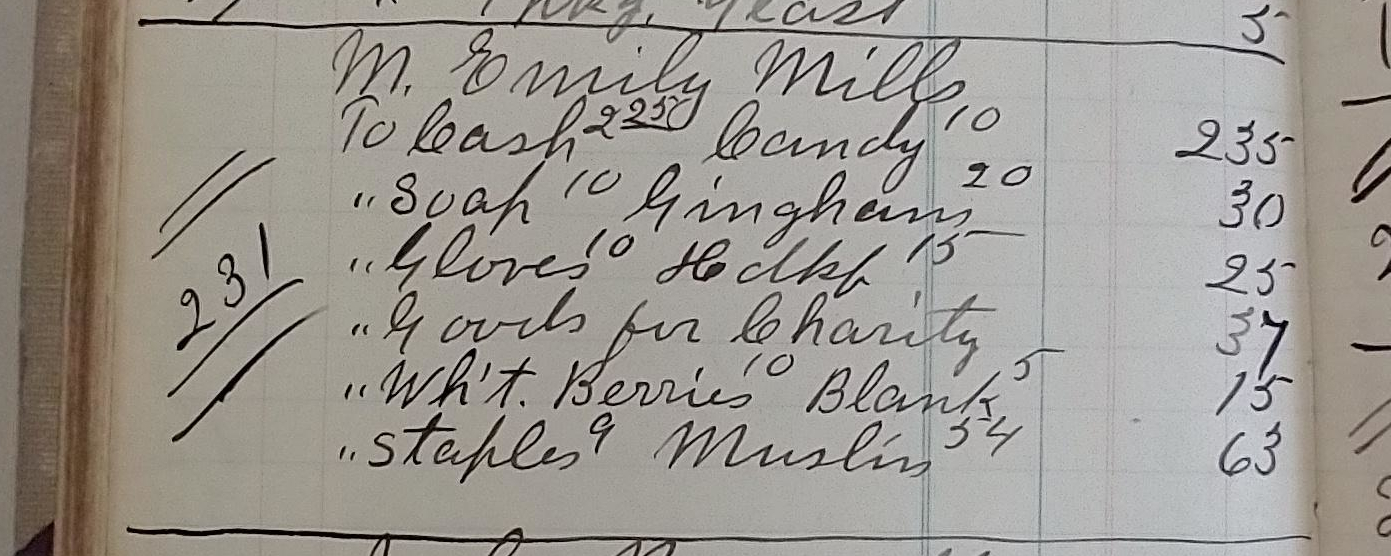 Pkg. Yeast 5
M. Emily Mills
To Cash 225 Candy 10 235
" Soap 10 Gingham 20 30
" Gloves 10 Hdkf 15 25
231
" Goods for Charity 37
" Wh't. Berries 10 Blank 5 15
" Staples 9 Muslin 54 63